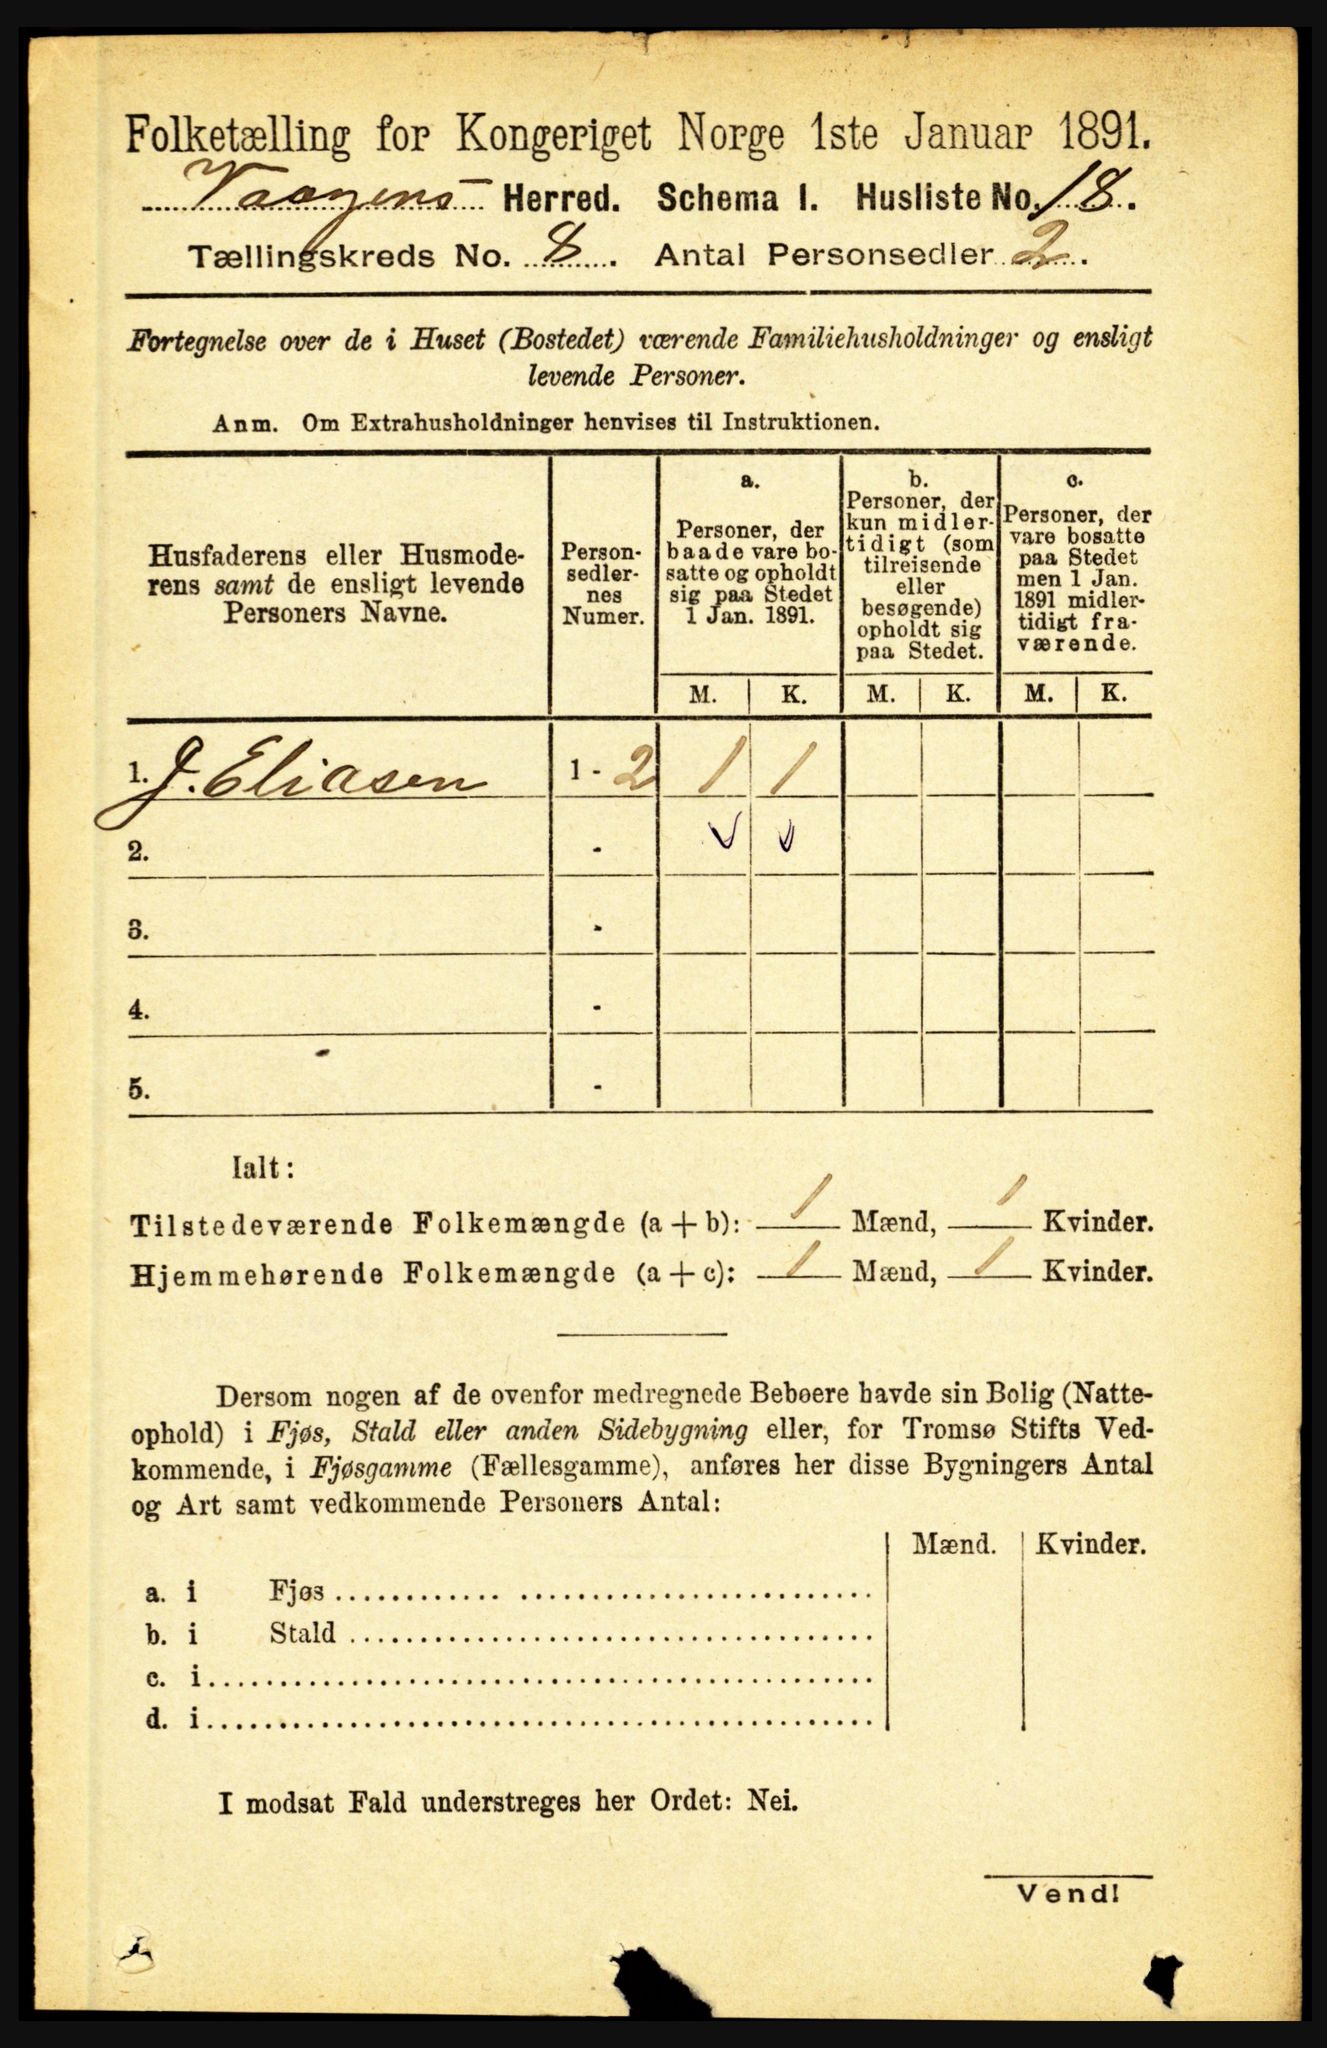 Folketælling for Kongeriget Norge 1ste Januar 1891.
Vaagens Herred. Schema I. Husliste No. 18.
Tællingskreds No. 8. Antal Personsedler 2.
Fortegnelse over de i Huset (Bostedet) værende Familiehusholdninger og ensligt
levende Personer.
Anm. Om Extrahusholdninger henvises til Instruktionen.
Husfaderens eller Husmode-
rens samt de ensligt levende
Personers Navne.
Person-
sedler-
nes
Numer.
a.
Personer, der
baade vare bo-
satte og opholdt
sig paa Stedet
1 Jan. 1891.
b.
Personer, der
kun midler-
tidigt (som
tilreisende
eller
besøgende)
opholdt sig
paa Stedet.
c.
Personer, der
vare bosatte
paa Stedet
men 1 Jan.
1891 midler-
tidigt fra-
værende.
M. K. M. K. M. K.
1. J. Eliasen 1 - 2 1 1
2. -
3. -
4. -
5. -
Ialt:
Tilstedeværende Folkemængde (a + b): 1 Mænd, 1 Kvinder.
Hjemmehørende Folkemængde (a + c): 1 Mænd, 1 Kvinder.
Dersom nogen af de ovenfor medregnede Beboere havde sin Bolig (Natte-
ophold) i Fjøs, Stald eller anden Sidebygning eller, for Tromsø Stifts Ved-
kommende, i Fjøsgamme (Fællesgamme), anføres her disse Bygningers Antal
og Art samt vedkommende Personers Antal:
Mænd. Kvinder.
a. i Fjøs
b. i Stald
c. i
d. i
I modsat Fald understreges her Ordet: Nei.
Vend!